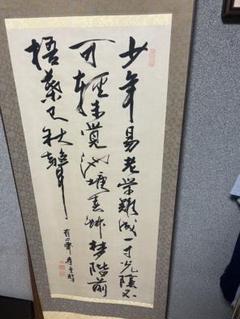 少年易老学難成一寸光陰不
可軽未覚池塘春草夢階前
梧葉已秋声